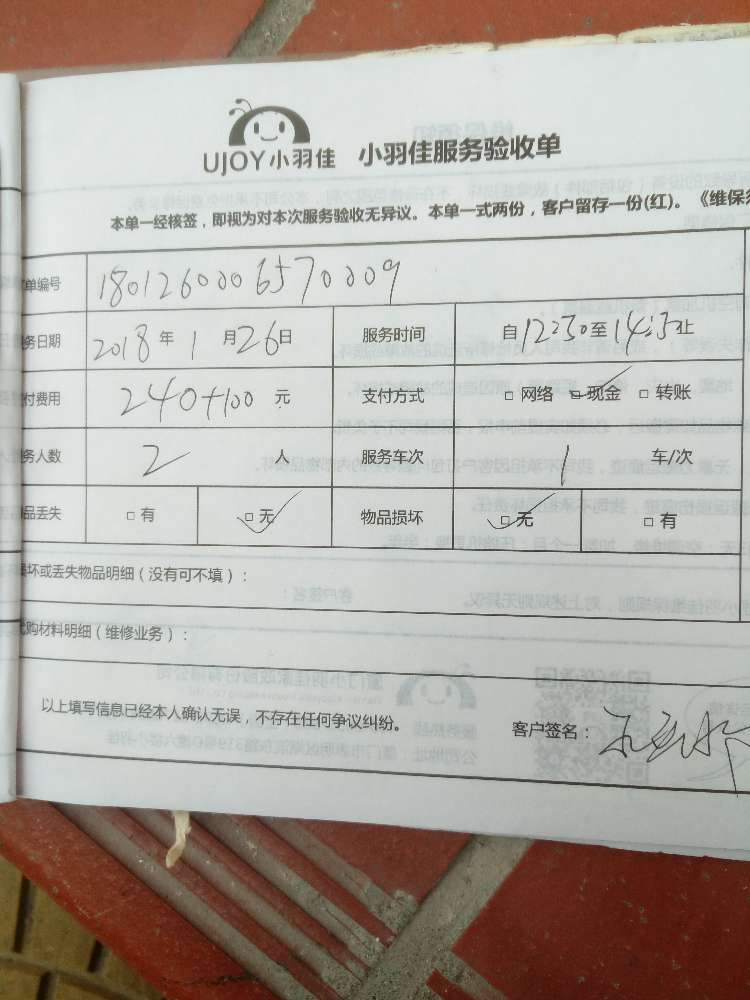 UJOY小羽佳 小羽佳服务验收单
本单一经核签，即视为对本次服务验收无异议。本单一式两份，客户留存一份(红)。《维保须
单编号 1801260006570009
务日期 2018 年 1 月 26 日 服务时间 自 12:30 至 14:30 止
付费用 240+100 元 支付方式 □ 网络 □ 现金 □ 转账
务人数 2 人 服务车次 1 车/次
品丢失 □ 有 □ 无 物品损坏 □ 无 □ 有
损坏或丢失物品明细（没有可不填）：
代购材料明细（维修业务）：
以上填写信息已经本人确认无误，不存在任何争议纠纷。 客户签名：